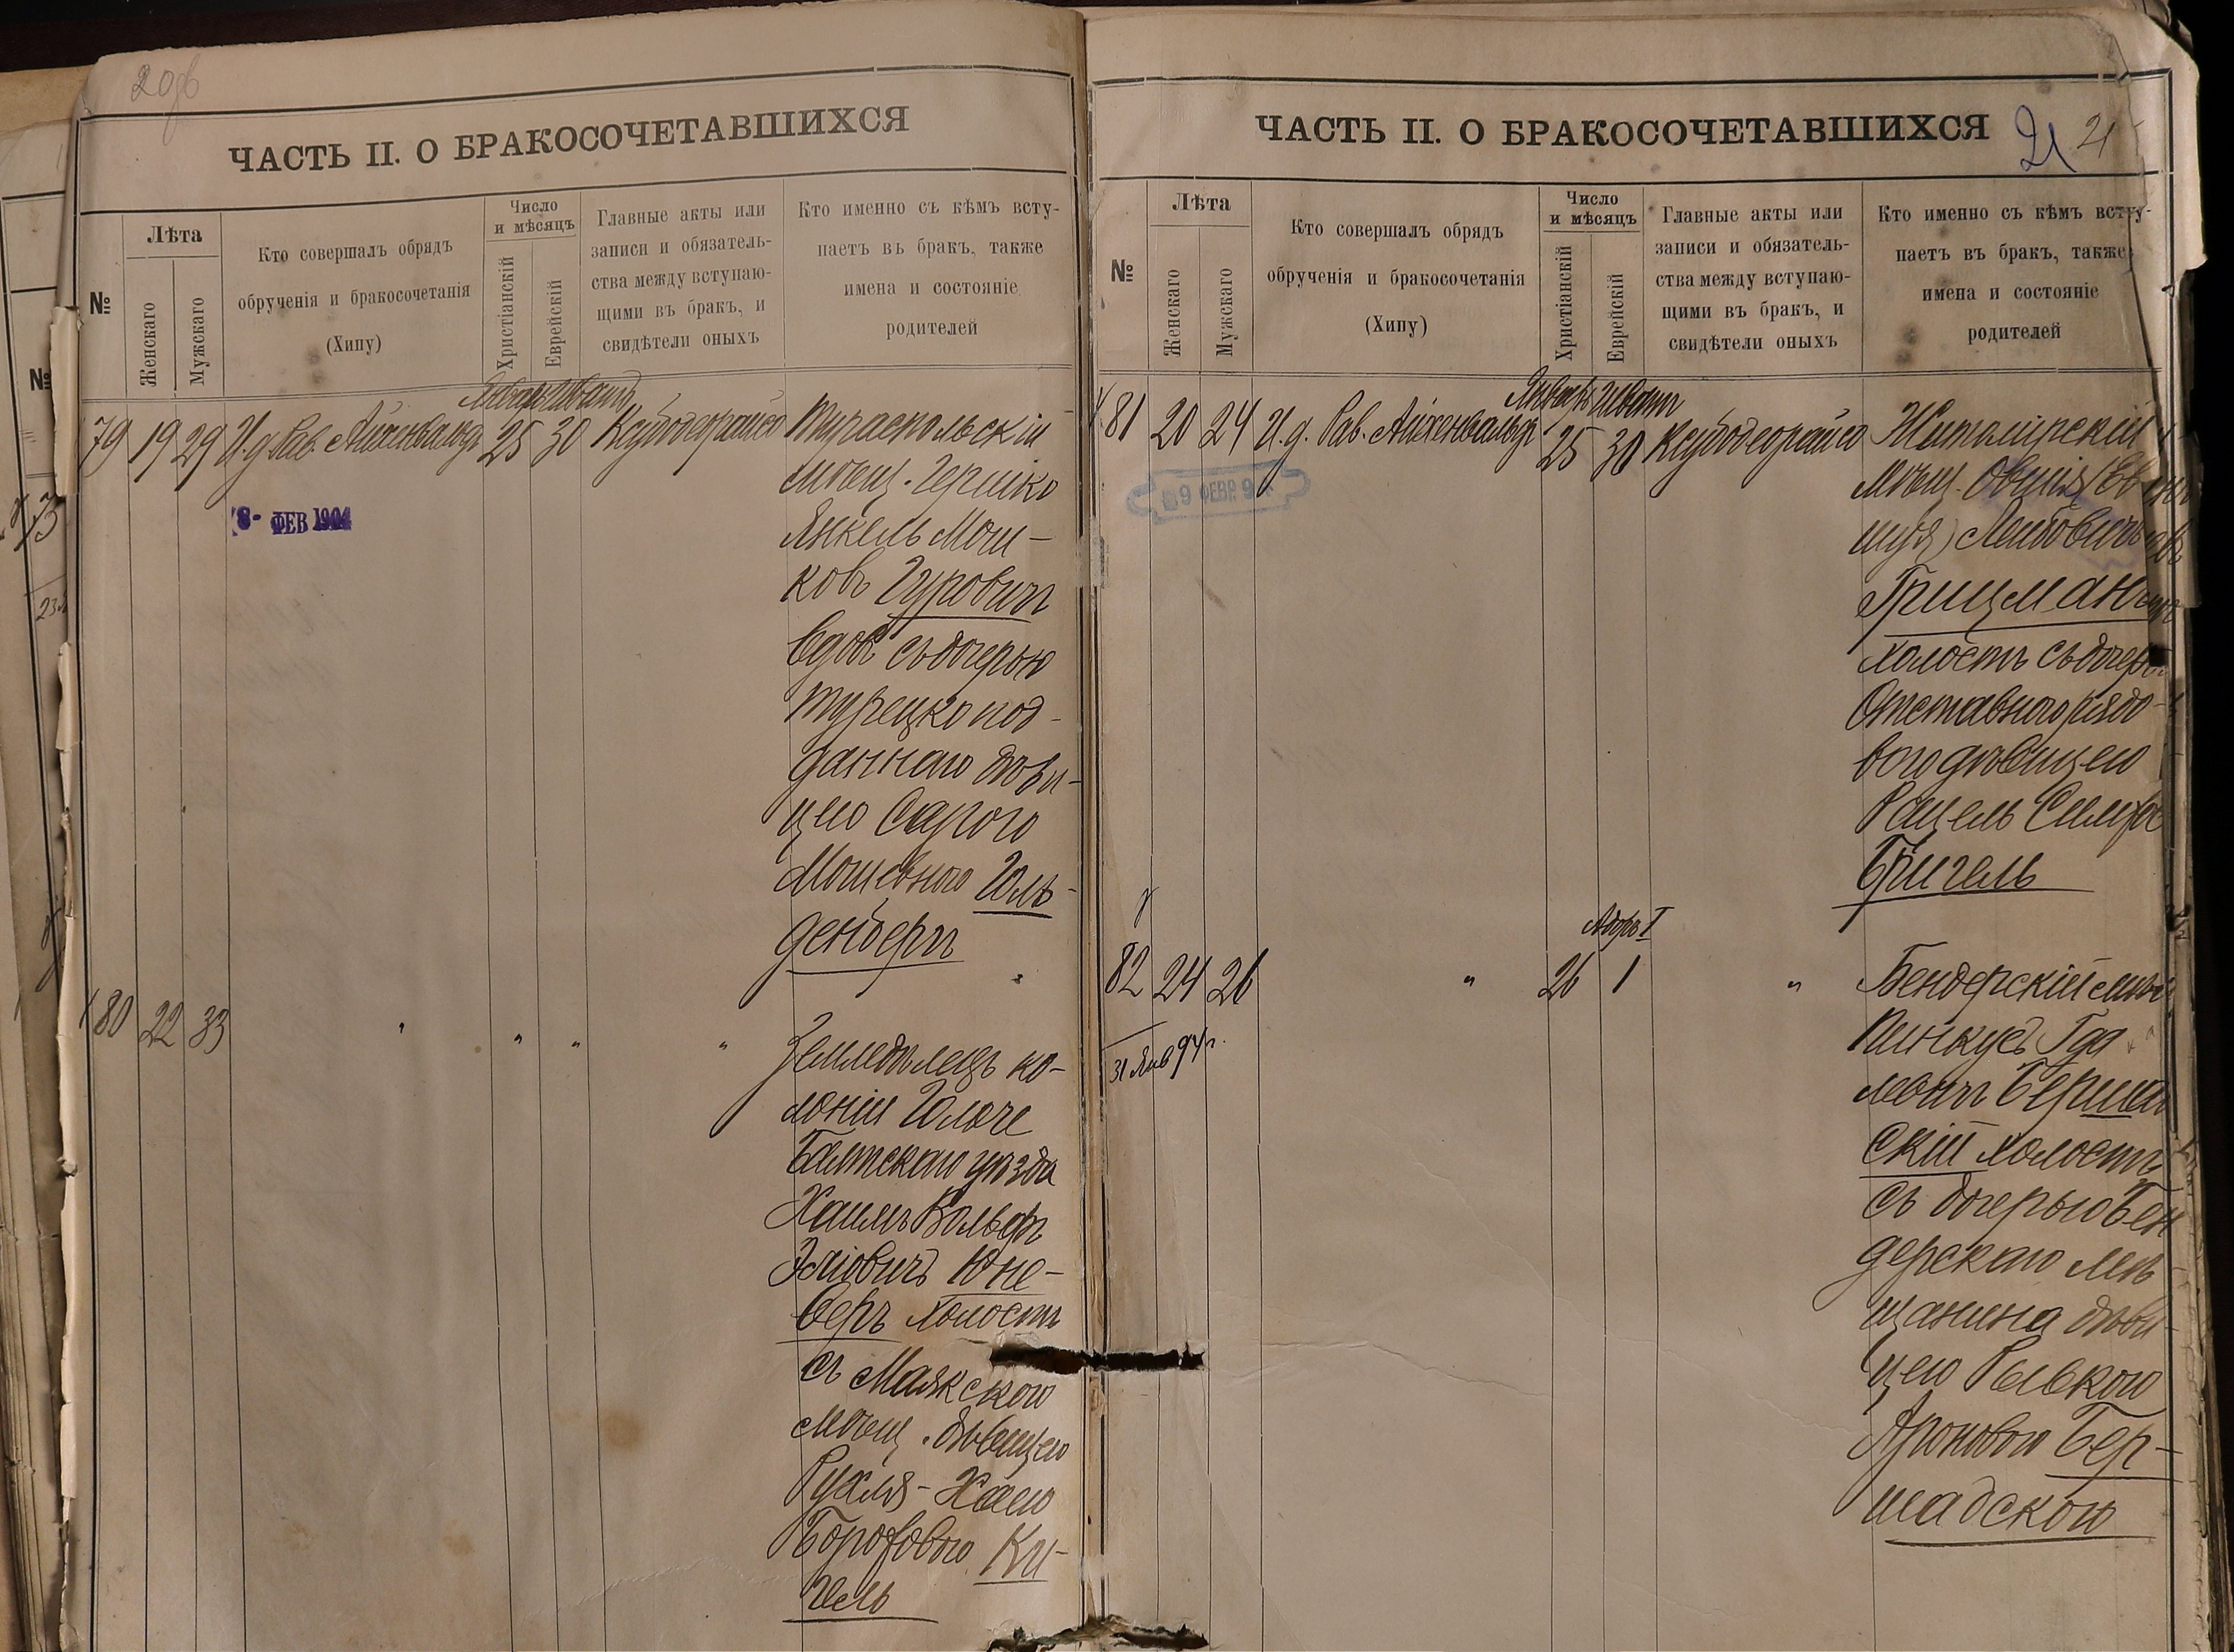 20об
ЧАСТЬ II. О БРАКОСОЧЕТАВШИХСЯ
№
Лѣта
Женскаго
Мужскаго
Кто совершалъ обрядъ
обрученія и бракосочетанія
(Хипу)
Число
и мѣсяцъ
Христіанскій
Еврейскій
Главные акты или
записи и обязатель-
ства между вступаю-
щими въ бракъ, и
свидѣтели оныхъ
Кто именно съ кѣмъ всту-
паетъ въ бракъ, также
имена и состояніе
родителей
Январь Шватъ
79 19 29 И.д. Рав. Айхенвальдъ 25 30 Ксубодеорайсо Тираспольскій
мѣщ. Гершко
Янкель Мош-
ковъ Гуровичъ
вдов съ дочерью
турецко под-
даннаго дѣви-
цею Сарою
Мошевною Голь-
денбергъ
8- ФЕВ 1904
80 22 33 " " " " Земледѣлецъ ко-
лоніи
Балтскаго уѣзда
Хаимъ Вольфъ
Эліовичъ Юне-
веръ холостъ
съ Маякскою
мѣщ. дѣвицею
Рухля-Хаею
Боруховою Ки-
гель
ЧАСТЬ II. О БРАКОСОЧЕТАВШИХСЯ
21 21
№
Лѣта
Женскаго
Мужскаго
Кто совершалъ обрядъ
обрученія и бракосочетанія
(Хипу)
Число
и мѣсяцъ
Христіанскій
Еврейскій
Главные акты или
записи и обязатель-
ства между вступаю-
щими въ бракъ, и
свидѣтели оныхъ
Кто именно съ кѣмъ всту-
паетъ въ бракъ, также
имена и состояніе
родителей
Январь Шватъ
81 20 24 И.д. Рав. Айхенвальдъ 25 30 Ксубодеорайсо Житомірскій
мѣщ. Овшія
шуя) Лейбовичъ
Грицман
холостъ съ дочерью
Отставного рядо-
вого дѣвицею
Рацель Симха
Бригель
9 ФЕВР. 9
Адаръ I
82 24 26 " 26 1 " Бендерскій мѣщ
Пинкусъ Гда
леичъ Берша
скій холостъ
съ дочерью Бен
дерскаго мѣ
щанина дѣви
цею Рывкою
Ароновою Бер-
шадскою
31 Янв 94 г.